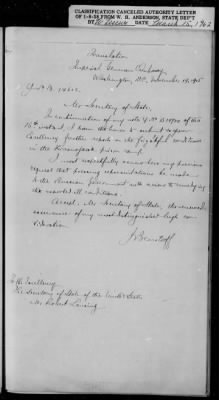 CLASSIFICATION CANCELED AUTHORITY LETTER
OF 1-8-58 FROM W. H. ANDERSON, STATE DEP'T
BY DATE March 15, 1962
Translation
Imperial German Embassy
Washington, D.C., November 19, 1915
Mr. Secretary of State,
In continuation of my note of the
16th instant, I have the honor to submit to your
Excellency further reports on the frightful conditions
in the prison camp.
I most respectfully renew here my previous
request that pressing representations be made
to the Russian Government with a view to remedying
the reported ill conditions.
Accept, Mr. Secretary of State, the renewed
assurance of my most distinguished high con-
sideration
J. Bernstorff
His Excellency
The Secretary of State of the United States
Mr. Robert Lansing